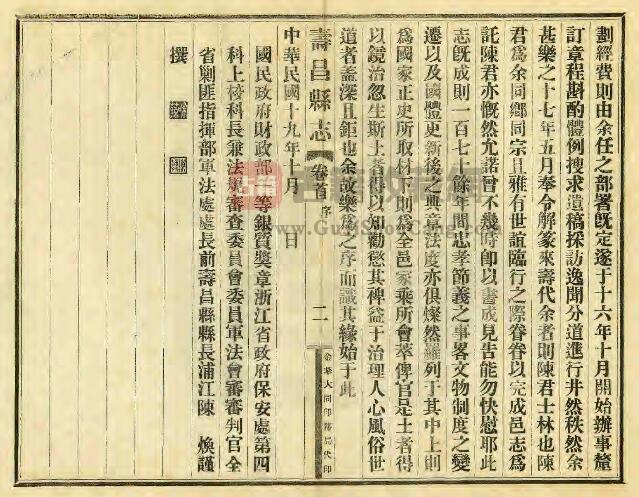 劃經費則由余任之部署旣定遂于十六年十月開始辦事釐
訂章程斟酌體例搜求遺稿採訪逸聞分道進行井然秩然余
甚樂之十七年五月奉令解篆來壽代余者則陳君士林也陳
君爲余同鄉同宗且雅有世誼臨行之際眷眷以完成邑志爲
託陳君亦慨然允諾曾不幾時卽以書成見告能勿快慰耶此
志旣成則一百七十餘年間忠孝節義之事畧文物制度之變
遷以及國體更新後之典章法度亦俱燦然羅列于其中上則
爲國家正史所取材下則爲全邑家乘所會萃俾官是土者得
以鏡治忽生斯土者得以知勸懲其裨益于治理人心風俗世
道者盖深且鉅也余故樂爲之序而識其緣始于此
中華民國十九年十月 日
國民政府財政部 等銀質獎章浙江省政府保安處第四
科上校科長兼法規審查委員會委員軍法會審審判官全
省剿匪指揮部軍法處處長前壽昌縣縣長浦江陳 煥謹
撰
壽昌縣志
卷首 序
二
金華大同印務局代印
古籍